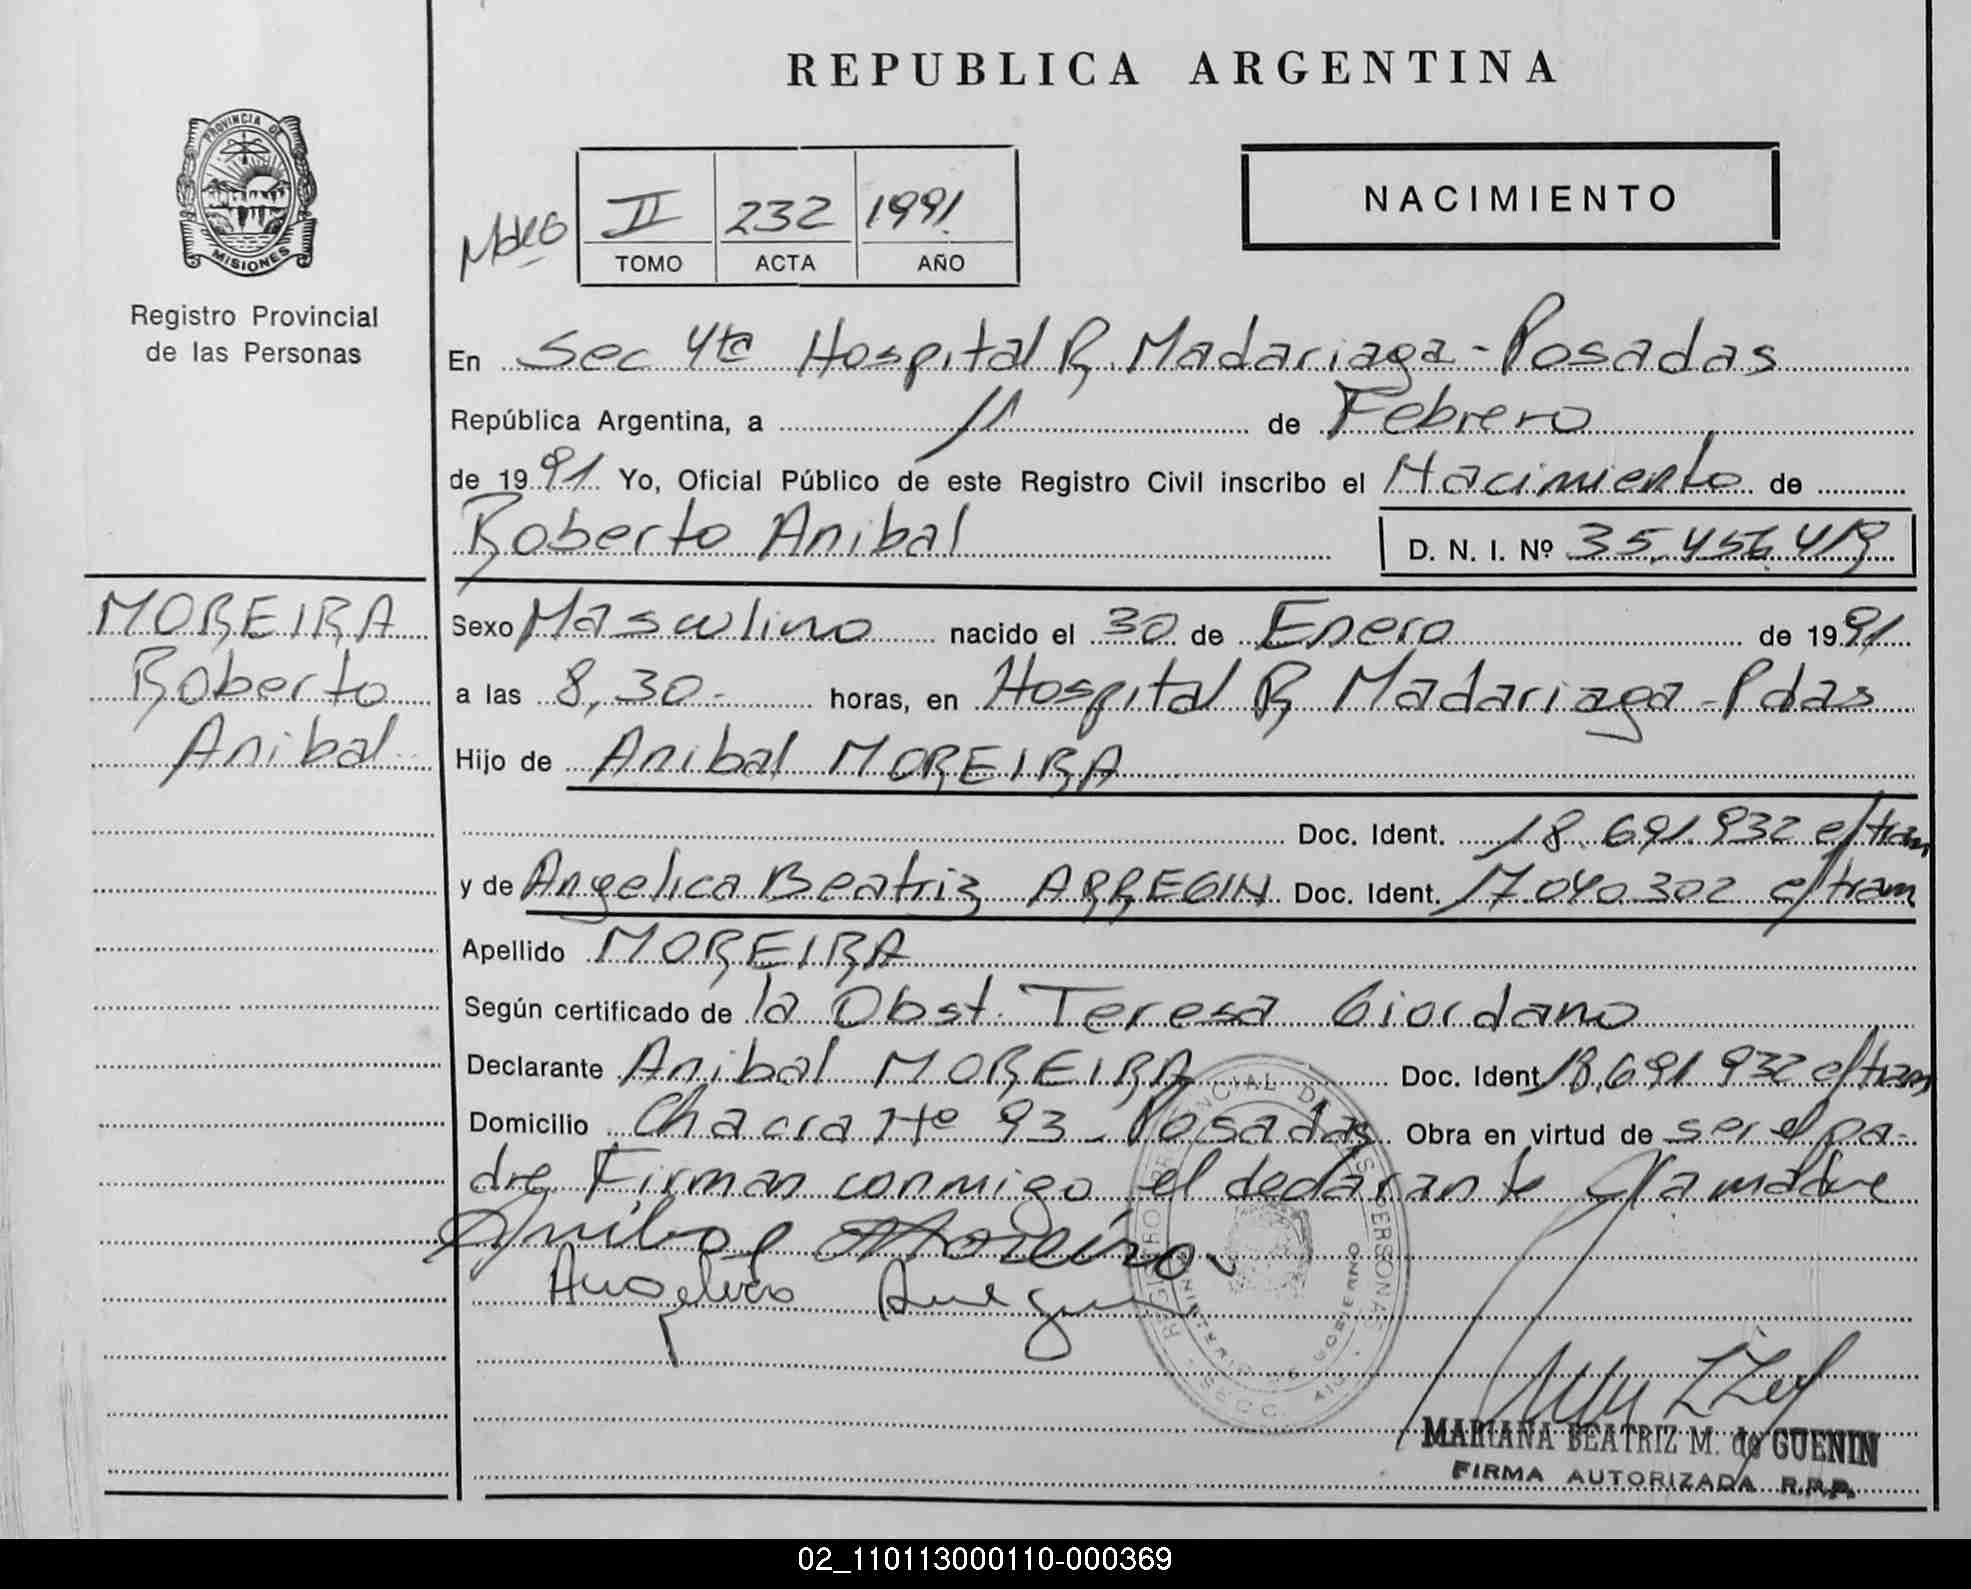 REPUBLICA ARGENTINA
PROVINCIA DE
MISIONES
Registro Provincial
de las Personas
II 232 1991
TOMO ACTA AÑO
NACIMIENTO
En Sec 4ta Hospital R. Madariaga - Posadas
República Argentina, a 11 de Febrero
de 1991 Yo, Oficial Público de este Registro Civil inscribo el Nacimiento de
Roberto Anibal D. N. I. Nº 35.456.419
MOREIRA
Roberto
Anibal
Sexo Masculino nacido el 30 de Enero de 1991
a las 8,30.- horas, en Hospital R Madariaga - Pdas
Hijo de Anibal MOREIRA
Doc. Ident. 18.691.932 e/tram
y de Angelica Beatriz ARREGIN Doc. Ident. 17.040.302 e/tram
Apellido MOREIRA
Según certificado de la Obst. Teresa Giordano
Declarante Anibal MOREIRA Doc. Ident 18.691.932 e/tram
Domicilio Chacra Nº 93 - Posadas Obra en virtud de ser el pa-
dre Firman conmigo el declarante y la madre
Anibal Moreira
Angelica Arregin
REGISTRO PROVINCIAL DE LAS PERSONAS
MINISTERIO DE GOBIERNO
MARIANA BEATRIZ M. de GUENIN
FIRMA AUTORIZADA R.P.P.
02_110113000110-000369